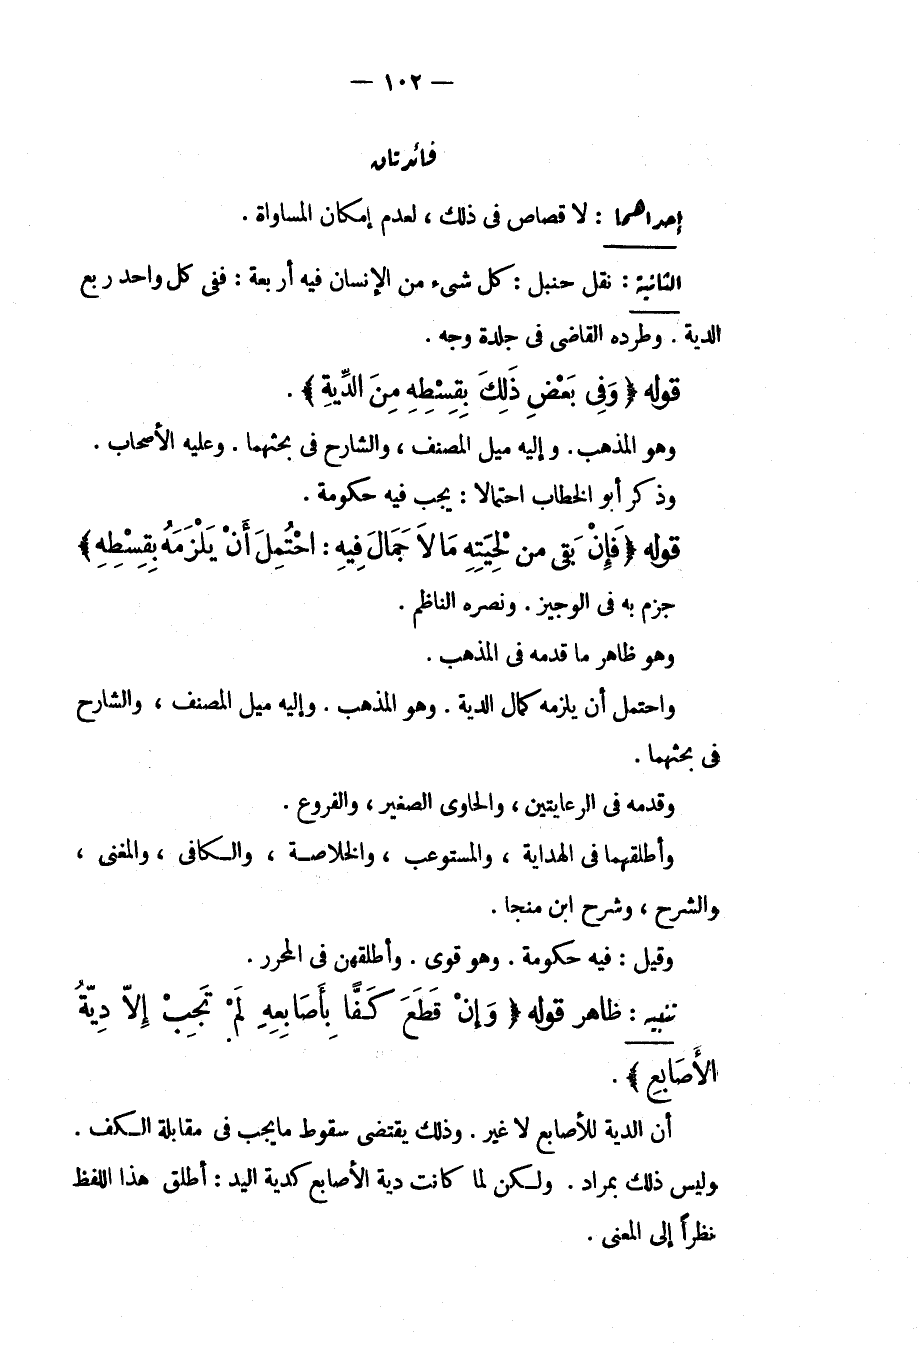 — ١٠٢ —
فائدتان
إحداهما : لا قصاص فى ذلك ، لعدم إمكان المساواة .
الثانية : نقل حنبل : كل شىء من الإنسان فيه أربعة : ففى كل واحد ربع
الدية . وطرده القاضى فى جلدة وجه .
قوله ﴿ وَفِى بَعْضِ ذَلِكَ بِقِسْطِهِ مِنَ الدِّيَةِ ﴾ .
وهو المذهب . وإليه ميل المصنف ، والشارح فى بحثهما . وعليه الأصحاب .
وذكر أبو الخطاب احتمالا : يجب فيه حكومة .
قوله ﴿ فَإِنْ بَقِى من لْحِيَتِهِ مَا لاَ جَمَالَ فِيهِ : احْتُمِلَ أَنْ يَلْزَمَهُ بِقِسْطِهِ ﴾
جزم به فى الوجيز . ونصره الناظم .
وهو ظاهر ما قدمه فى المذهب .
واحتمل أن يلزمه كمال الدية . وهو المذهب . وإليه ميل المصنف ، والشارح
فى بحثهما .
وقدمه فى الرعايتين ، والحاوى الصغير ، والفروع .
وأطلقهما فى الهداية ، والمستوعب ، والخلاصـة ، والـكافى ، والمغنى ،
والشرح ، وشرح ابن منجا .
وقيل : فيه حكومة . وهو قوى . وأطلقهن فى المحرر .
تنبيه : ظاهر قوله ﴿ وَإِنْ قَطَعَ كَفًّا بِأَصَابِعِهِ لَمْ تَجِبْ إِلاّ دِيّةُ
الأَصَابِعِ ﴾ .
أن الدية للأصابع لا غير . وذلك يقتضى سقوط مايجب فى مقابلة الـكف .
وليس ذلك بمراد . ولـكن لما كانت دية الأصابع كدية اليد : أطلق هذا اللفظ
نظراً إلى المعنى .